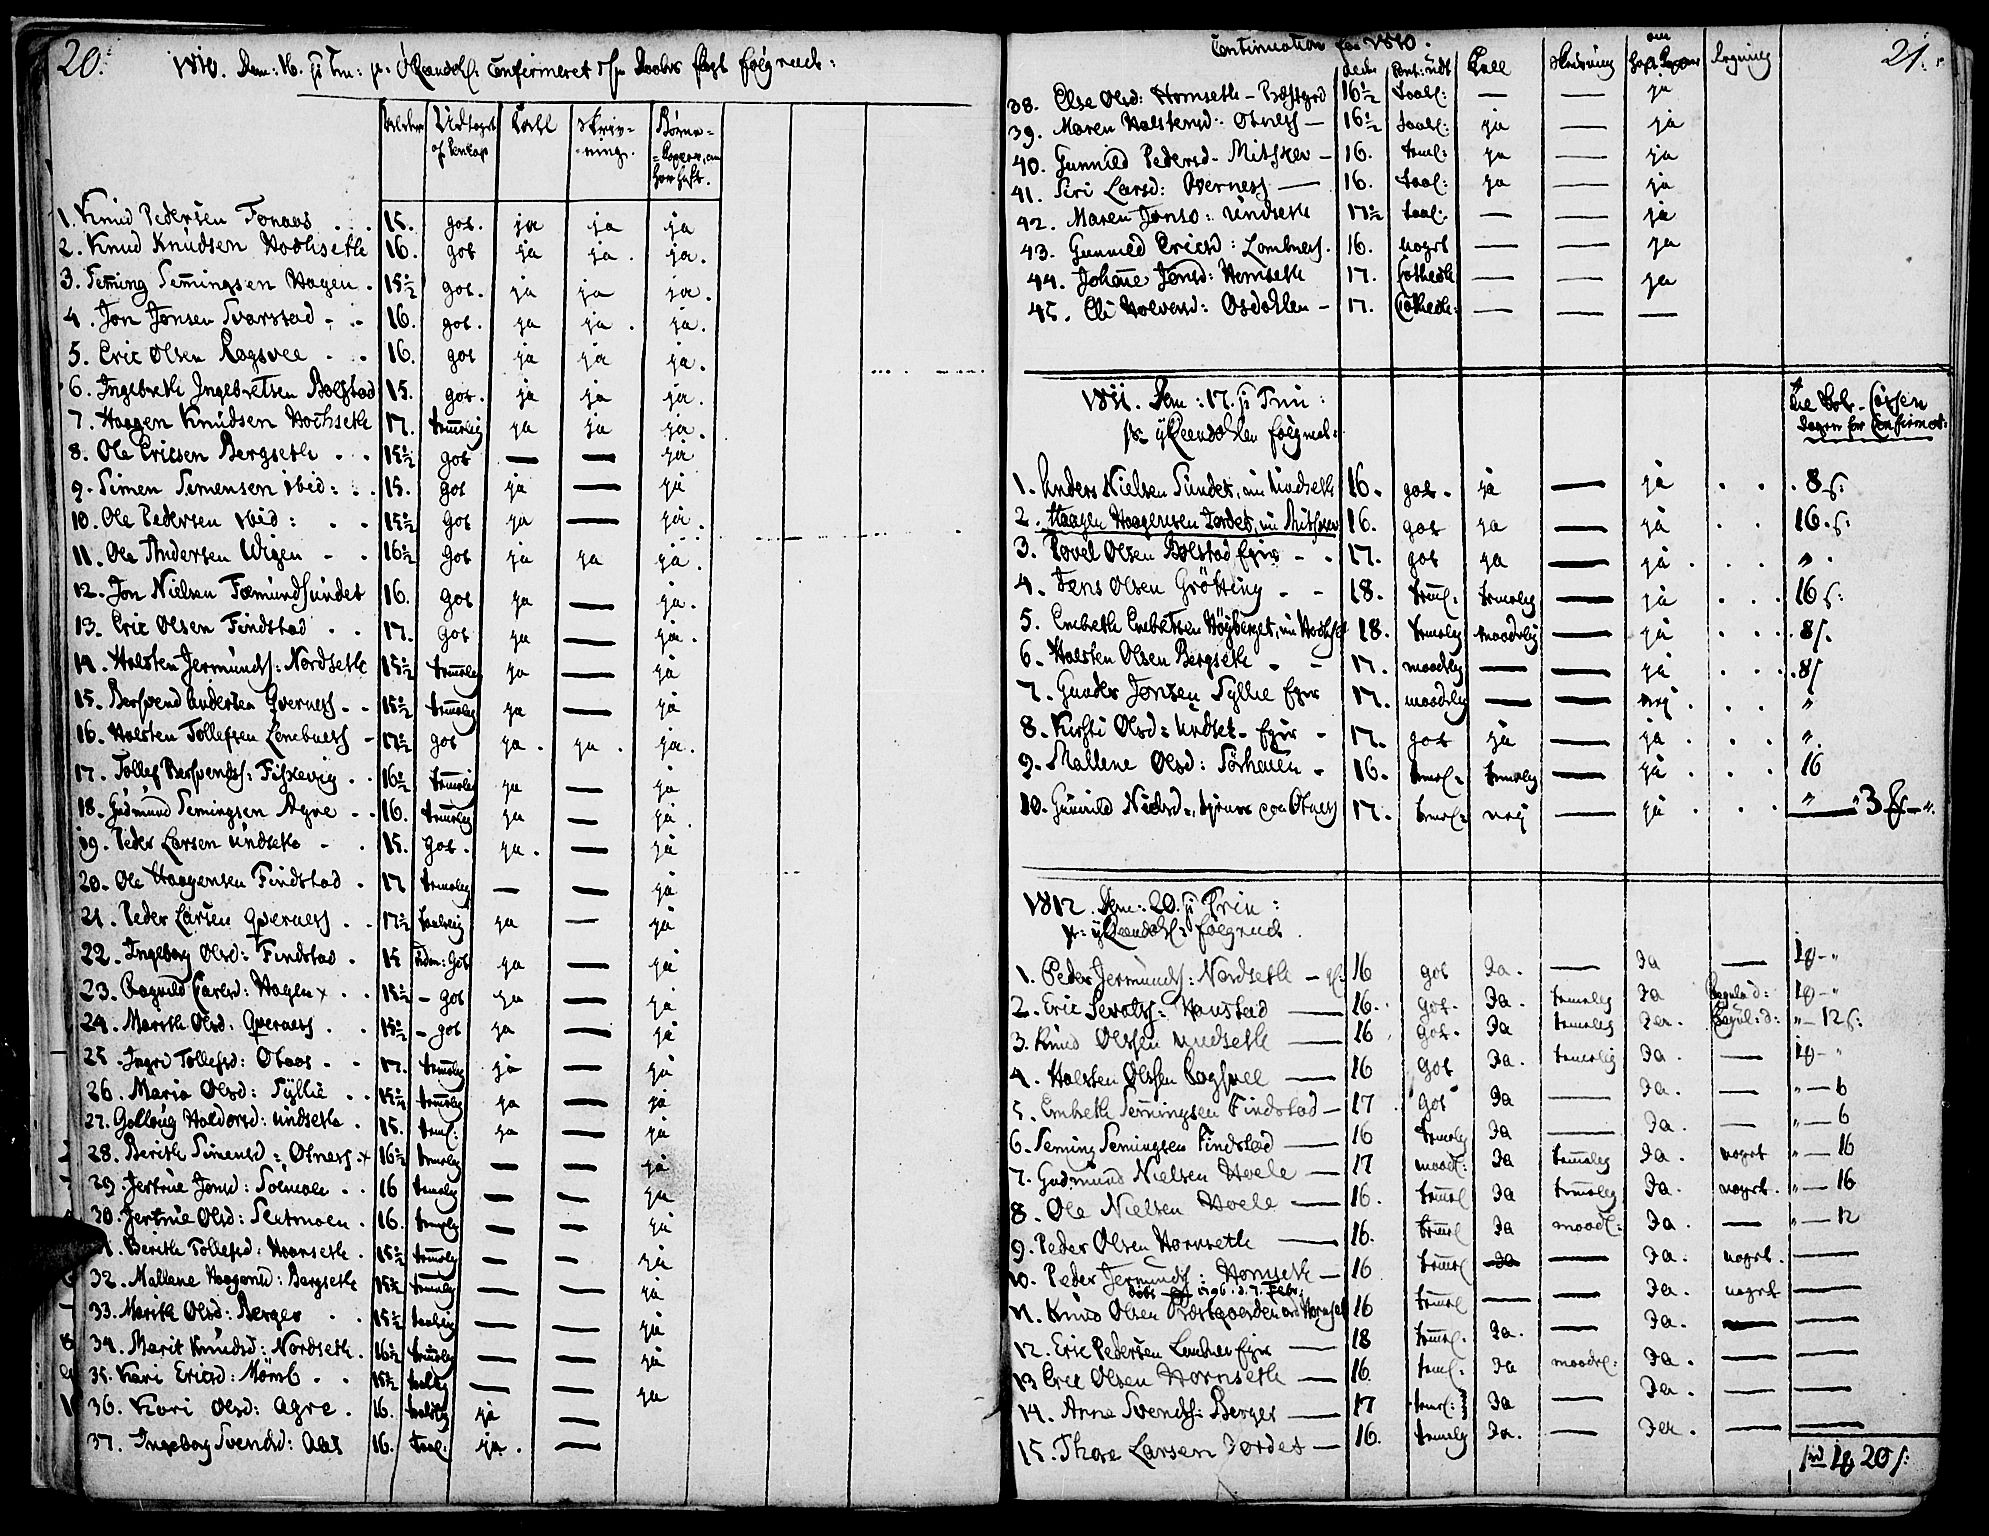 20.
1810. Dom: 16. p: Trin: p: Øvrendahl: Confirmeret følgende:
Alder Udtoget af Kentap Tall Skriv=ning. Børne=Kopper, om haver haft.
1. Knud Pedersen Tønaas 15. god. ja ja ja
2. Knud Knudsen Hochseth 16. god ja ja. ja.
3. Seming Semingsen Hagen. 15½ god. ja ja ja.
4. Jon Jonsen Svarstad 16. god. ja ja. ja.
5. Eric Olsen Ragsvee 16. god ja ja ja.
6. Ingebreth Ingebretsen Bolstad 15. god. ja ja ja.
7. Haagen Knudsen Hochseth 17. temmelig ja ja ja.
8. Ole Ericsen Bergseth 15½ god — — ja
9. Simen Simensen ibid: 15. god ja — ja
10. Ole Pedersen ibid: 15½ god ja — ja.
11. Ole Andersen Wigen 16½ god ja ja ja.
12. Jon Nielsen Fæmundsundet 16. god ja — ja.
13. Eric Olsen Findstad 17. god ja — ja.
14. Halsten Jermunds: Nordseth 15½ temmelig ja — ja
15. Bersvend Andersen Qverness 15½ temmelig ja — ja
16. Halsten Tollefsen Lombness 17½ god ja. ja. ja.
17. Tollef Bersvends: Fiskevig 16½ temmelig ja — ja
18. Gudmund Semingsen Agre 16. temmelig ja — ja.
19. Peder Larsen Undseth 15. god. ja. — ja
20. Ole Haagensen Findstad. 17 temmelig — — ja
21. Peder Larsen Qverness 17½ taalelig ja — ja
22. Ingeborg Olsd: Findstad. 15 god ja — ja
23. Ragnild Carlsd: Hagen x 15½ – god ja — ja
24. Marith Olsd: Qverness 15½ – god ja — ja
25. Ingri Tollefsd: Otaas 17. temmelig ja — ja
26. Maria Olsd: Syllie 15¼ temmelig ja — ja
27. Gollaug Haldorsd: Undseth. 15. teml: ja — ja
28. Berith Simensd: Otness. x 16½ temmelig — — ja
29. Jertrue Jonsd: Solmoe 16 temmelig — — ja
30. Jertrue Olsd: Sletmoen. 16. temmelig — — ja
31. Berith Tollefsd: Hornseth. 15½ temmelig — — ja
32. Mallene Haagensd: Bergseth 15½ temmelig — — ja
33. Marith Olsd: Berger 15½ taalelig — — ja
34. Marit Knudsd: Nordseth. 16½ temmelig — — ja
35. Kari Ericsd: Mømb 15½ taalelig — — ja
36. Kari Olsd: Agre. 16. taalelig ja —
37. Ingeborg Svendsd: Aas 16. taal: ja. —
21.
Continuation for 1810.
Alder Kent: udt Tall Skrivning om haft Kopper Regning
38. Else Olsd: Hornseth – Præstgrd 16½ taal: — — ja
39. Maren Halstensd: Otness – 16½ taal: ja — ja
40. Gunnild Pedersd – Mitskov – 16. teml: ja — ja
41. Siri Larsd: Qverness — 16. taal: ja — ja
42. Maren Jonsd: Undseth 17½ taal: — — ja
43. Gunnild Ericsd: Lombness. 16. noget — — ja
44. Johane Jonsd: Hornseth 17. — — ja
45. Eli Halvorsd: Osdahlen – 17. — — —
1811. Dom: 17. p: Trin:
p: i Øvrendahlen følgende:
Confirmat:
1. Anders Nielsen Sundet, nu Undseth 16. god. ja — ja 8 s:
2. Haagen Haagensen Jordet, nu Mitskov 16. god ja — ja 16. s:
3. Povel Olsen Bolstad Ejer 17. god ja — ja "
4. Jens Olsen Grøtting 18. teml: temmelig — ja 16 s:
5. Embreth Embretsen Høyberget, nu Hochset 18. temmelig maadelig — ja 8 s.
6. Halsten Olsen Bergseth 17. maadelig — — ja 8 s
7. Gunder Jonsen Syllie Ejer 17. maadelig — — nej "
8. Kirsti Olsd: Undset – Ejer 17. god ja — ja "
9. Mallene Olsd: Sørhuen 16. teml: temmelig — ja 16
10. Gunnild Nielsd:, Otness 17. teml: nej — ja " 3
1812. Dom: 20. p: Trin:
p: i Øvrendahl: følgende
1. Peder Jermunds: Nordseth – 16 god Ja. — Ja —
2. Eric Haustad — 16. god. Ja. temmelig Ja
3. Knud Olssen Undseth — 16 god. Ja temmelig Ja. " – 12 s:
4. Halsten Olssen Ragsvee — 16 god Ja. temmelig Ja. —
5. Embreth Semingsen Findstad – 17. god Ja — Ja. " – 6
6. Seming Semingsen Findstad — 16 temmelig Ja — Ja. " – 6
7. Gudmund Nielsen Hoele — 17 maadl: Ja temmelig Ja. noget " – 16
8. Ole Nielsen Hoele — 16. temml Ja temmelig Ja. noget. " – 16
9. Peder Olsen Hornseth — 16. temml Ja maadl: Ja. — " – 12
10. Peder Jermunds: Hornseth — 16 temml Ja — Ja. noget. —
døbt 1796. d. 7. Febr.
11. Knud Olsen Præstgaarden Hornset 16 temml — — Ja. noget —
12. Eric Pedersen Ejer — 18 temml. Ja. — Ja. — —
13 Eric Olsen Hornseth — 16. teml. Ja maadel: Ja. — —
14. Anne Svends: Berger — 17 teml: Ja — Ja. — —
15. Thore Larsen Jordet — 16. temmelig Ja. — Ja. — —
20 s: